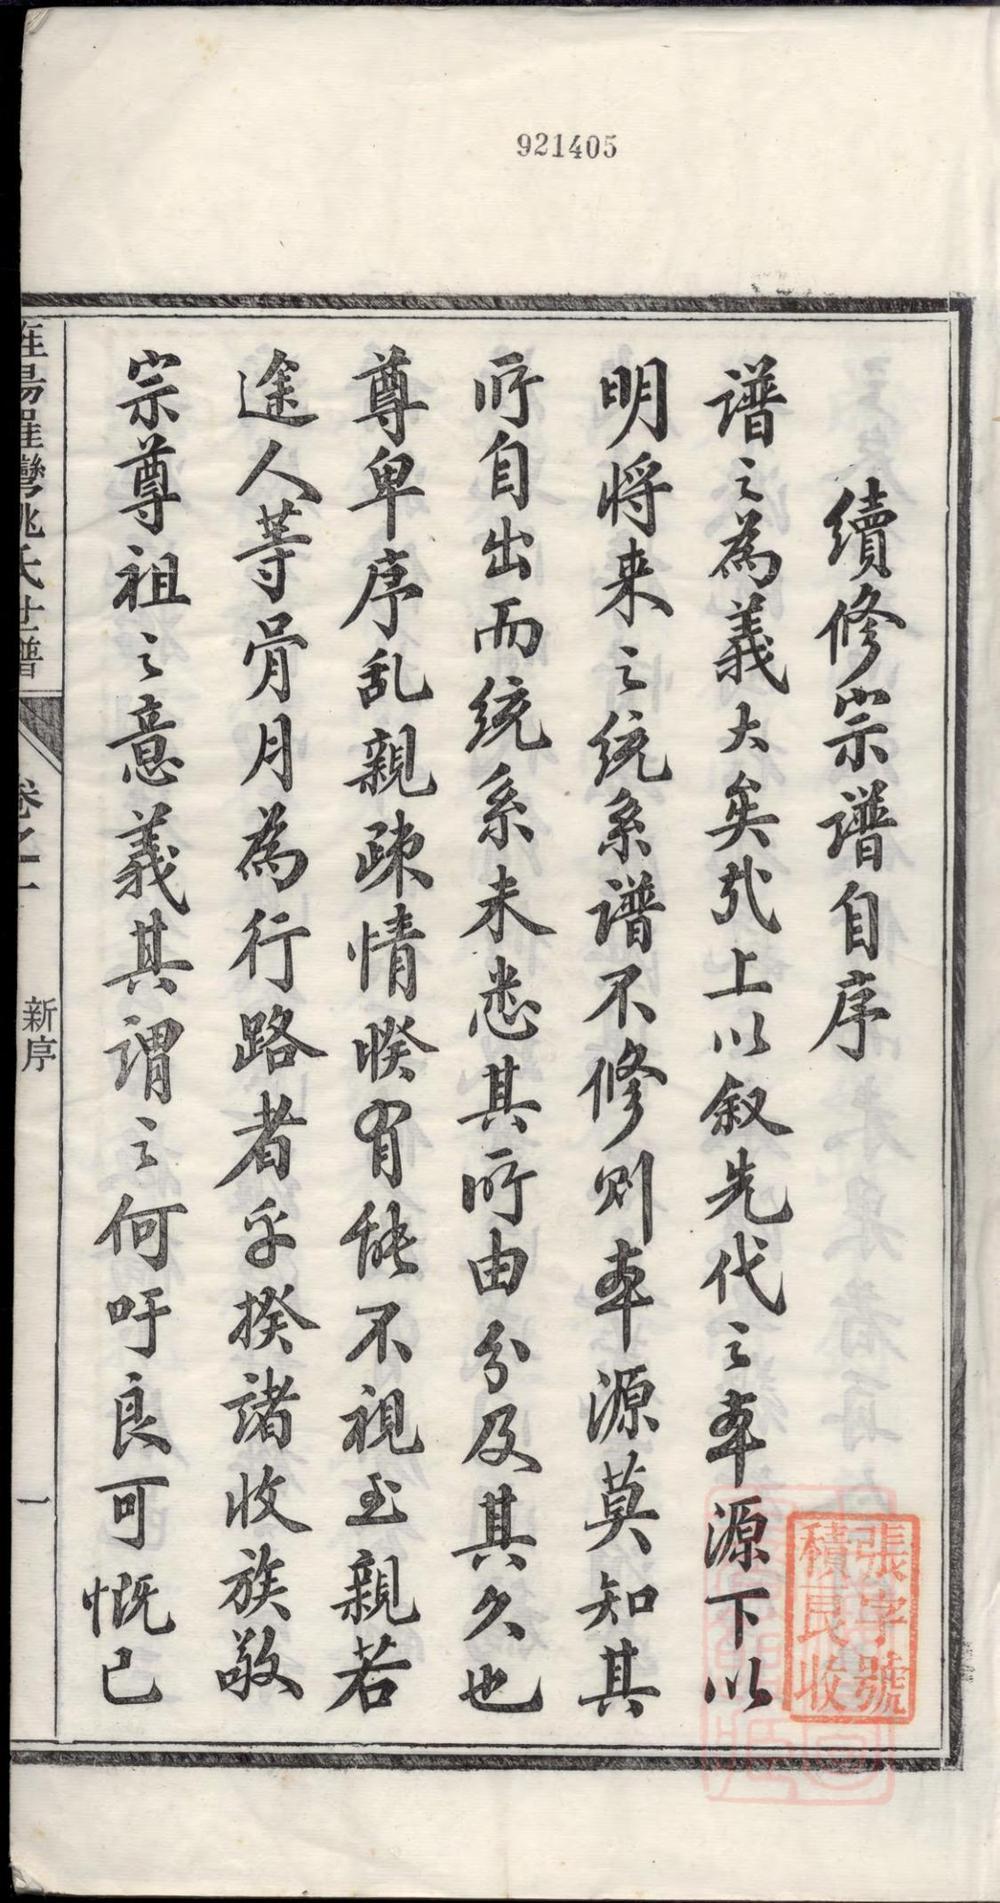 921405
續修宗譜自序
譜之為義大矣哉上以叙先代之本源下以
明將来之統系譜不修則本源莫知其
所自出而統系未悉其所由分及其久也
尊卑序乱親疎情暌有能不視至親若
途人等骨月為行路者乎揆諸收族敬
宗尊祖之意義其謂之何吁良可慨已
羅灣姚氏世譜
卷之一
新序
一
張字號
積良收